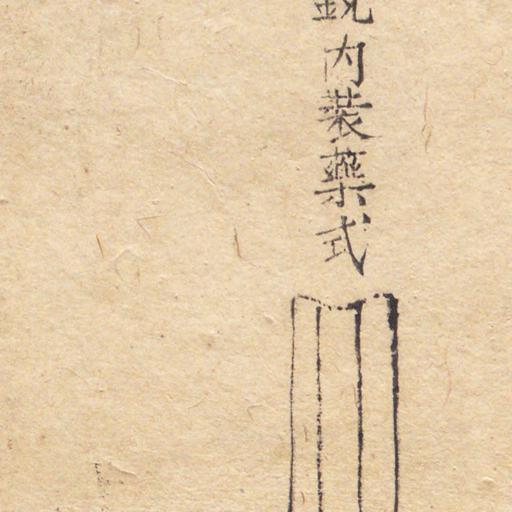 銃内装藥式